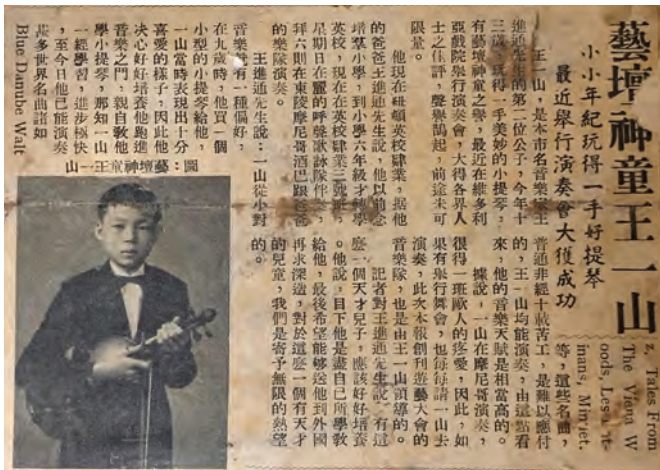 藝壇神童王一山
小小年紀玩得一手好提琴
最近舉行演奏會大獲成功
王一山,是本市名音樂家王
進通先生的第二位公子,今年十
三歲,玩得一手美妙的小提琴,
有藝壇神童之譽,最近在維多利
亞戲院舉行演奏會,大得各界人
士之佳評,聲譽鵲起,前途未可
限量。
他現在毗頓英校肄業,据他
的爸爸王進通先生說,他以前念
培羣小學,到小學六年級才轉學
英校,現在在英校肄業三號班,
星期日在麗的呼聲歌詠隊伴奏,
拜六則在東陵摩尼哥酒巴跟爸爸
的樂隊演奏。
王進通先生說:一山從小對
音樂就有一種偏好,
在九歲時,他買一個
小型的小提琴給他,
一山當時表現出十分
喜愛的樣子,因此他
決心好好培養他跑進
音樂之門,親自敎他
學小提琴,那知一山
一經學習,進步極快
,至今日他已能演奏
甚多世界名曲諸如
Blue Danube Walt
z, Tales From
The Viena W
oods,
等,這些名曲,
普通非經十載苦工,是難以應付
的,王一山均能演奏,由這點看
來,他的音樂天賦是相當高的。
據說,一山在摩尼哥演奏,
很得一班歐人的疼愛,因此,如
果有舉行舞會,也每每請一山去
演奏,此次本報創刊遊藝大會的
音樂隊,也是由王一山領導的。
記者對王進通先生說,有這
麼一個天才兒子,應該好好培養
。他說,目下他是盡自己所學敎
給他,最後希望能夠送他到外國
再求深造,對於這麼一個有天才
的兒童,我們是寄予無限的熱望
的。
圖:藝壇神童王一山